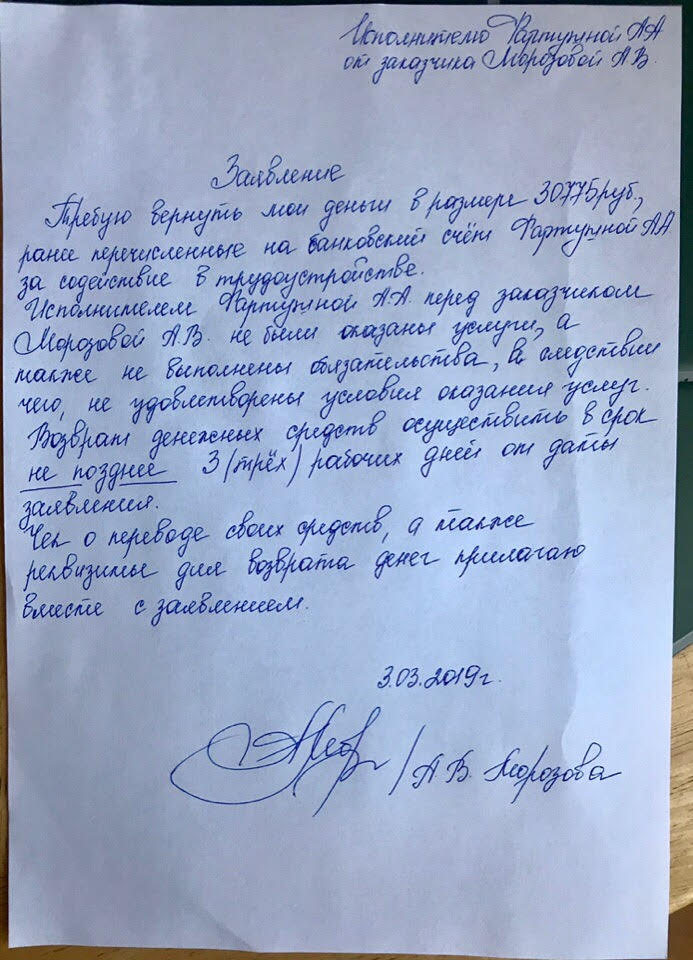 Исполнителю Фартушной АА
от заказчика Морозовой А.В.
Заявление
Требую вернуть мои деньги в размере 30775руб.,
ранее перечисленные на банковский счёт Фартушной АА
за содействие в трудоустройстве.
Исполнителем Фартушной А.А. перед заказчиком
Морозовой А.В. не были оказаны услуги, а
также не выполнены обязательства, в следствии
чего, не удовлетворены условия оказания услуг.
Возврат денежных средств осуществить в срок
не позднее 3 (трёх) рабочих дней от даты
заявления.
Чек о переводе своих средств, а также
реквизиты для возврата денег прилагаю
вместе с заявлением.
3.03.2019г.
/ А.В. Морозова